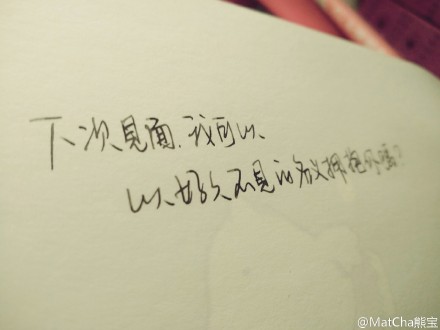 下次見面.我可以
以好久不見的名义拥抱你嗎?
@MatCha熊宝